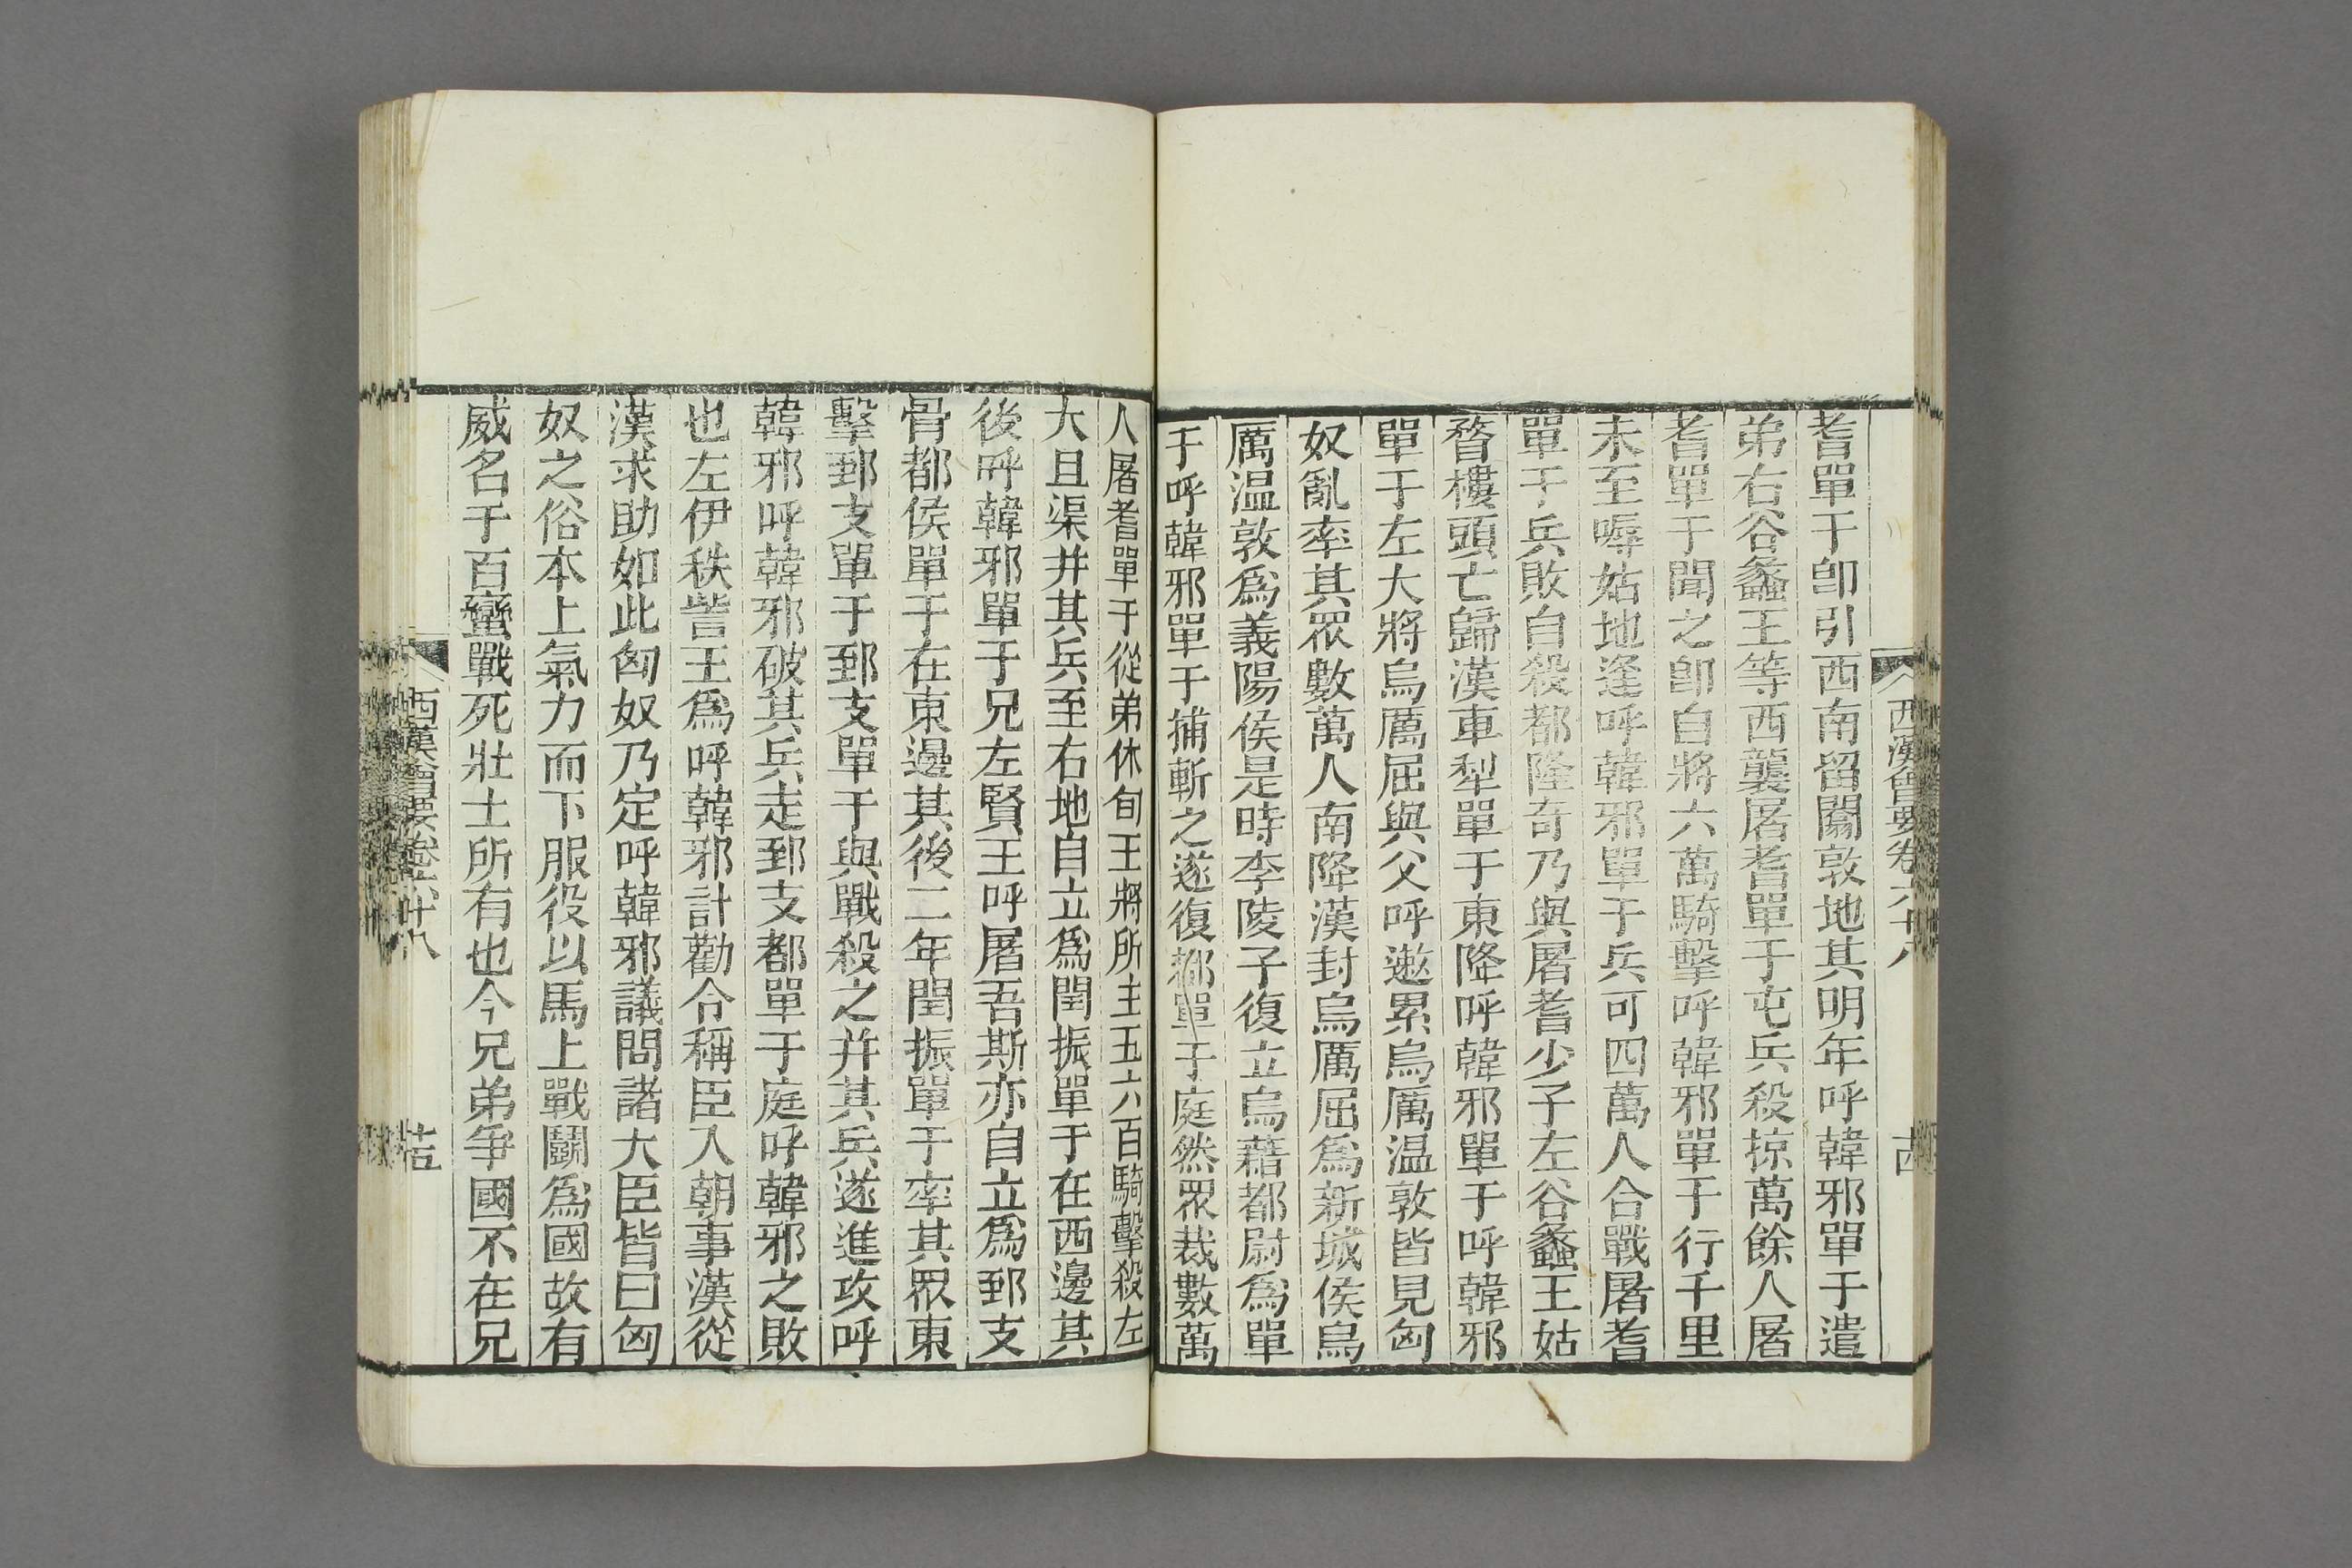 耆單于卽引西南留闟敦地其明年呼韓邪單于遣
弟右谷蠡王等西襲屠耆單于屯兵殺掠萬餘人屠
耆單于聞之卽自將六萬騎擊呼韓邪單于行千里
未至嗕姑地逢呼韓邪單于兵可四萬人合戰屠耆
單于兵敗自殺都隆奇乃與屠耆少子左谷蠡王姑
瞀樓頭亡歸漢車犁單于東降呼韓邪單于呼韓邪
單于左大將烏厲屈與父呼遫累烏厲温敦皆見匈
奴亂率其眾數萬人南降漢封烏厲屈爲新城侯烏
厲温敦爲義陽侯是時李陵子復立烏藉都尉爲單
于呼韓邪單于捕斬之遂復都單于庭然眾裁數萬
西漢會要卷六十八
十四
人屠耆單于從弟休旬王將所主五六百騎擊殺左
大且渠并其兵至右地自立爲閏振單于在西邊其
後呼韓邪單于兄左賢王呼屠吾斯亦自立爲郅支
骨都侯單于在東邊其後二年閏振單于率其眾東
擊郅支單于郅支單于與戰殺之并其兵遂進攻呼
韓邪呼韓邪破其兵走郅支都單于庭呼韓邪之敗
也左伊秩訾王爲呼韓邪計勸令稱臣入朝事漢從
漢求助如此匈奴乃定呼韓邪議問諸大臣皆曰匈
奴之俗本上氣力而下服役以馬上戰鬭爲國故有
威名于百蠻戰死壯士所有也今兄弟爭國不在兄
西漢會要卷六十八